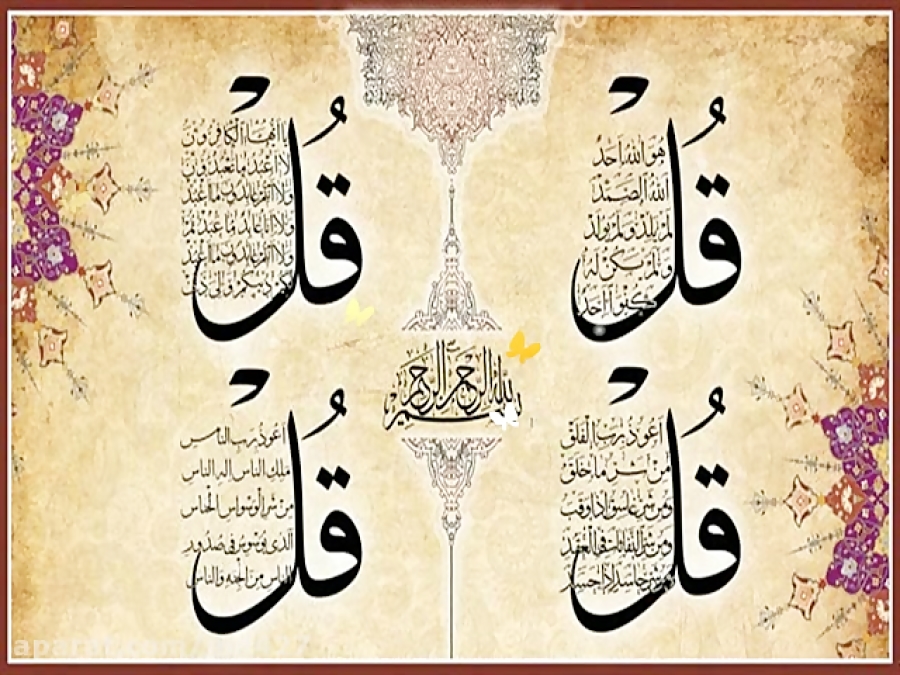 قُلْ
هُوَ اللهُ اَحَدٌ
اَللهُ الصَّمَدُ
لَمْ يَلِدْ وَلَمْ يُولَدْ
وَلَمْ يَكُنْ لَهُ
كُفُوًا اَحَدٌ
قُلْ
يا ايها الكافرون
لا اعبد ما تعبدون
ولا انتم عابدون ما اعبد
ولا انا عابد ما عبدتم
ولا انتم عابدون ما اعبد
لكم دينكم ولي دين
بسم الله الرحمن الرحيم
قُلْ
اعوذ برب الفلق
من شر ما خلق
ومن شر غاسق اذا وقب
ومن شر النفاثات في العقد
ومن شر حاسد اذا حسد
قُلْ
اعوذ برب الناس
ملك الناس اله الناس
من شر الوسواس الخناس
الذي يوسوس في صدور
الناس من الجنة والناس